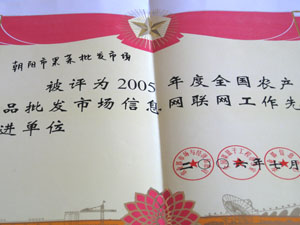 朝阳市果菜批发市场
被评为2005年度全国农产
品批发市场信息网联网工作先
进单位
二〇〇六年七月